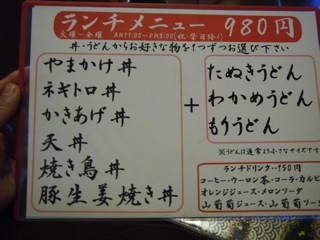 ランチメニュー 980円
火曜～金曜 AM11:00～PM5:00(祝・祭日除く)
丼・うどんからお好きな物を1つずつお選び下さい
やまかけ丼
ネギトロ丼
かきあげ丼
天丼
焼き鳥丼
豚生姜焼き丼
+
たぬきうどん
わかめうどん
もりうどん
※うどんは通常より小さなサイズです
ランチドリンク‥150円
コーヒー・ウーロン茶・コーラ・カルピ
オレンジジュース・メロンソーダ
山葡萄ジュース・山葡萄ソー